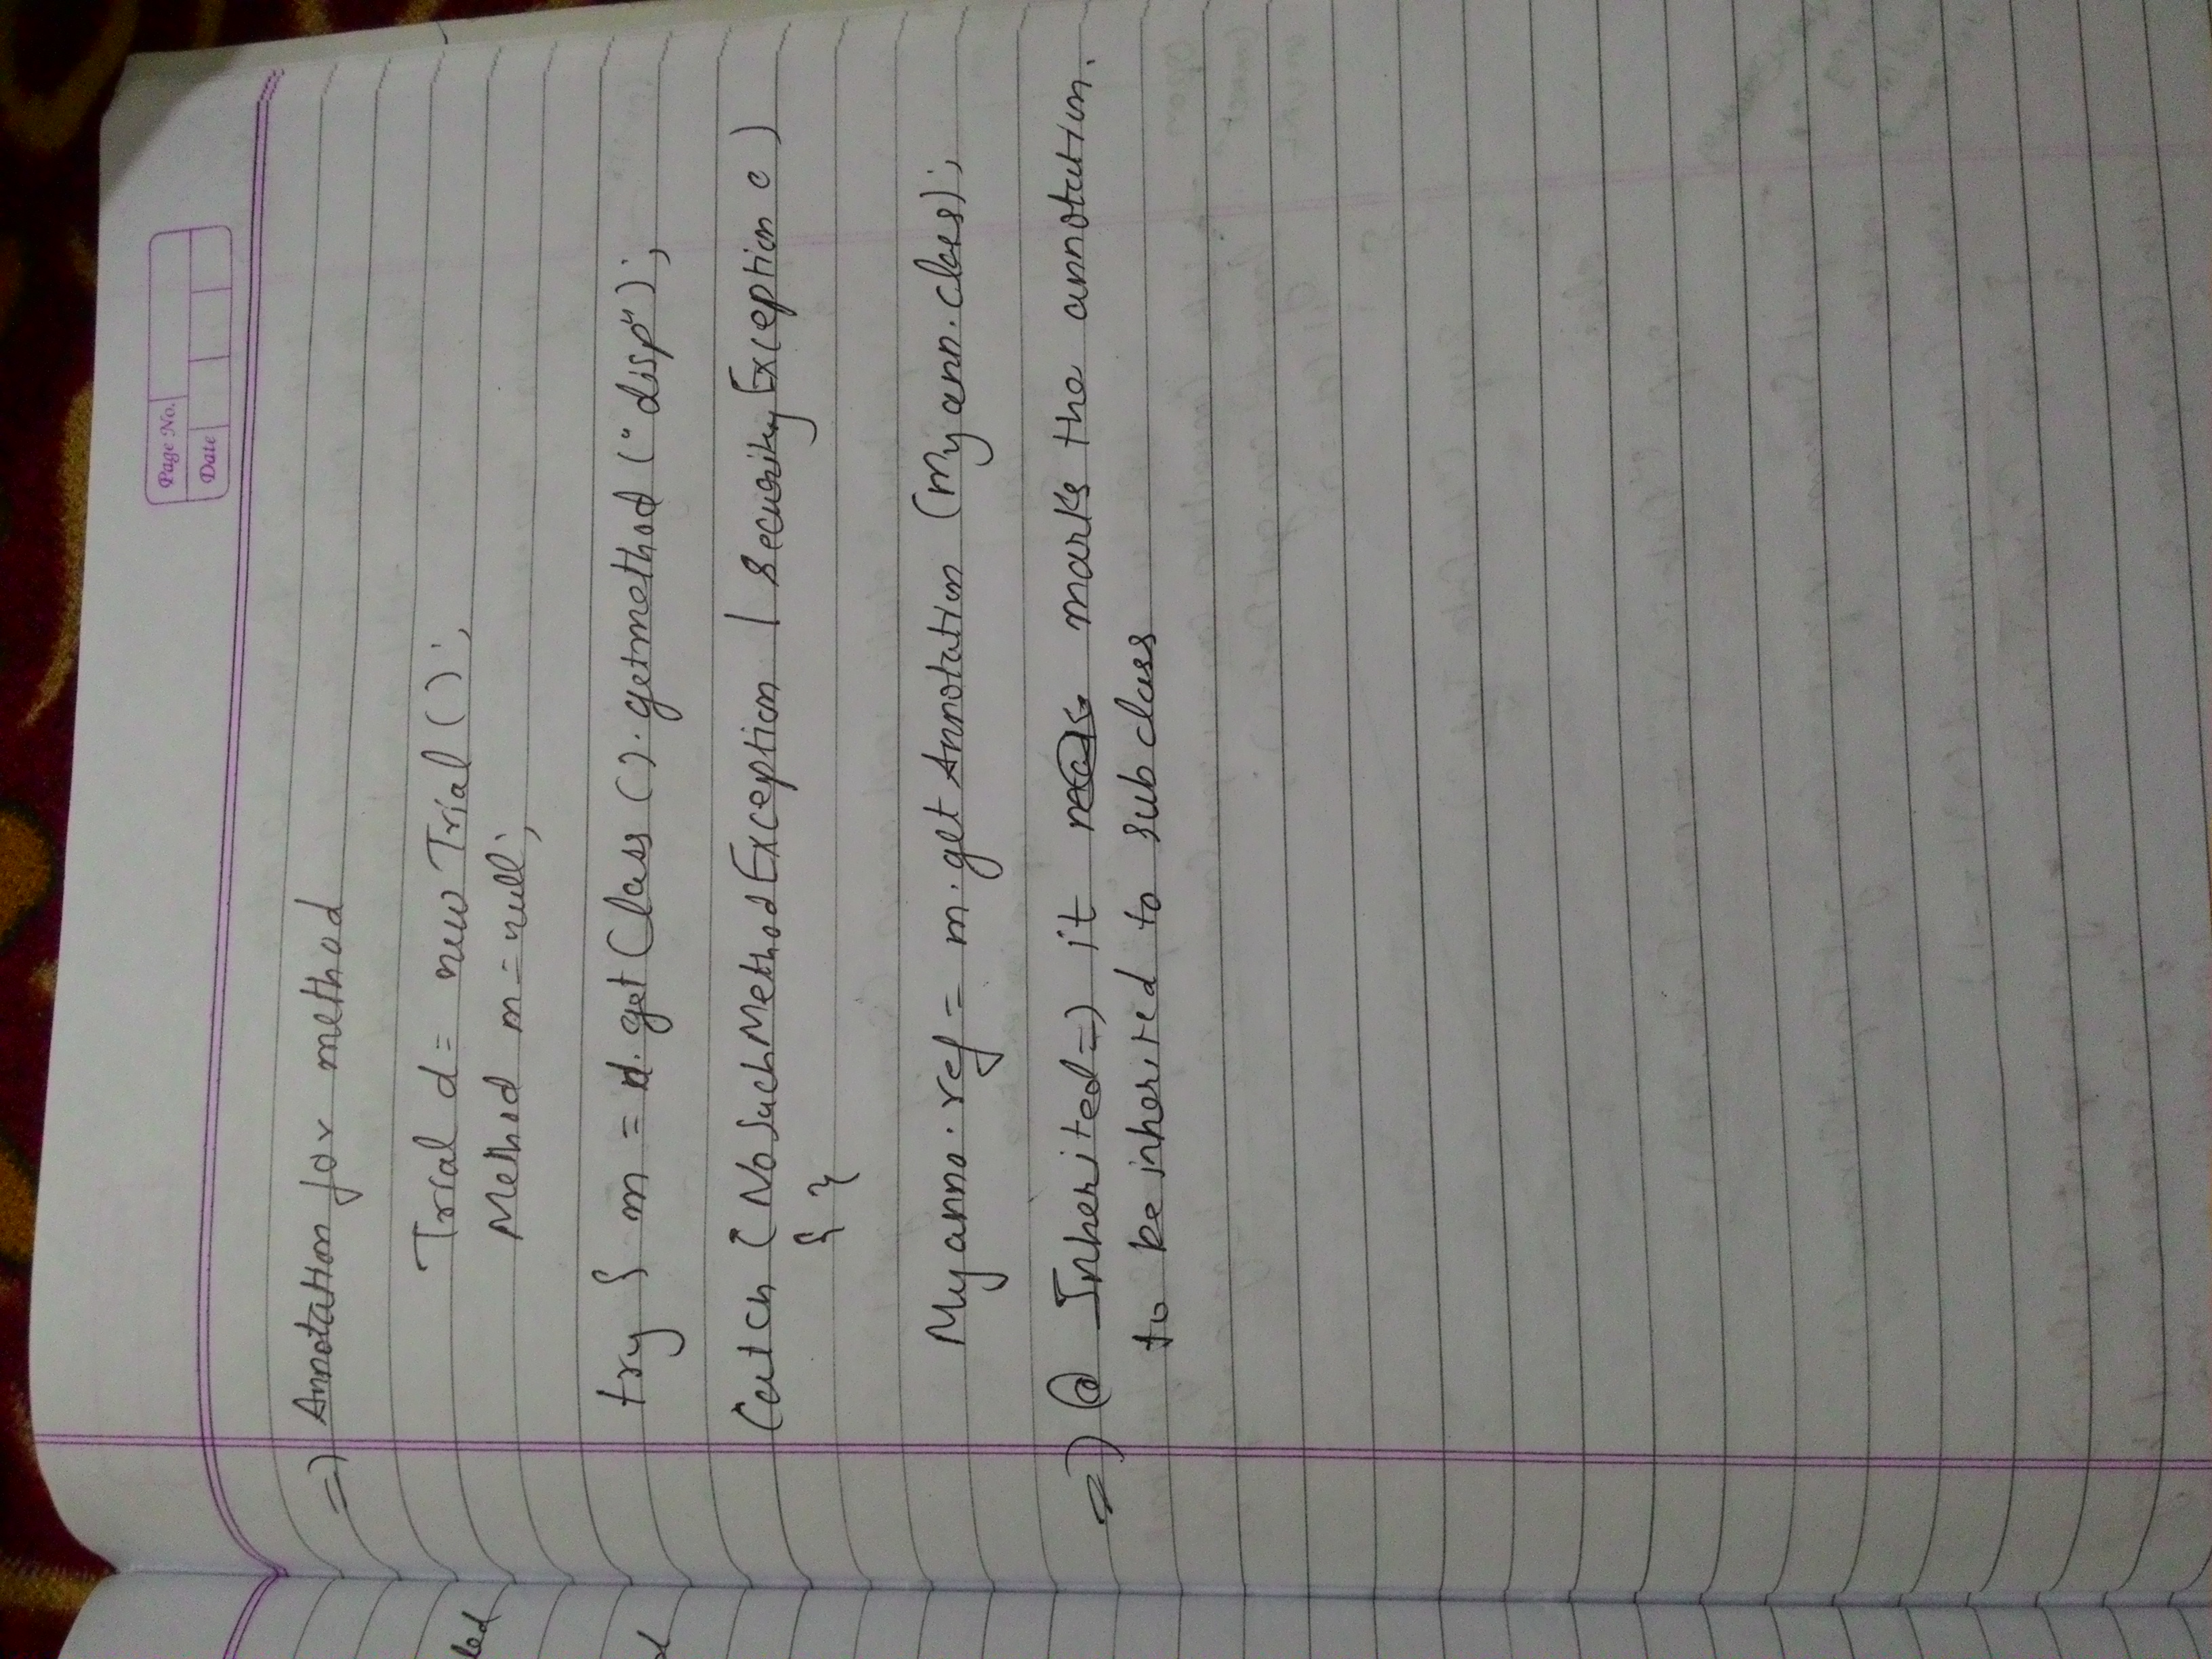 Page No.
Date
=) Annotation for method
Trial d = new Trial ( );
led
Method m = null;
try { m = d.getClass ( ). getmethod ("disp");
d
Catch ( NoSuchMethodException | SecurityException e )
{ }
Myanno. ref = m.get Annotation (Myann.class);
=) @ Inherited =) it marks the annotation.
to be inherited to sub class